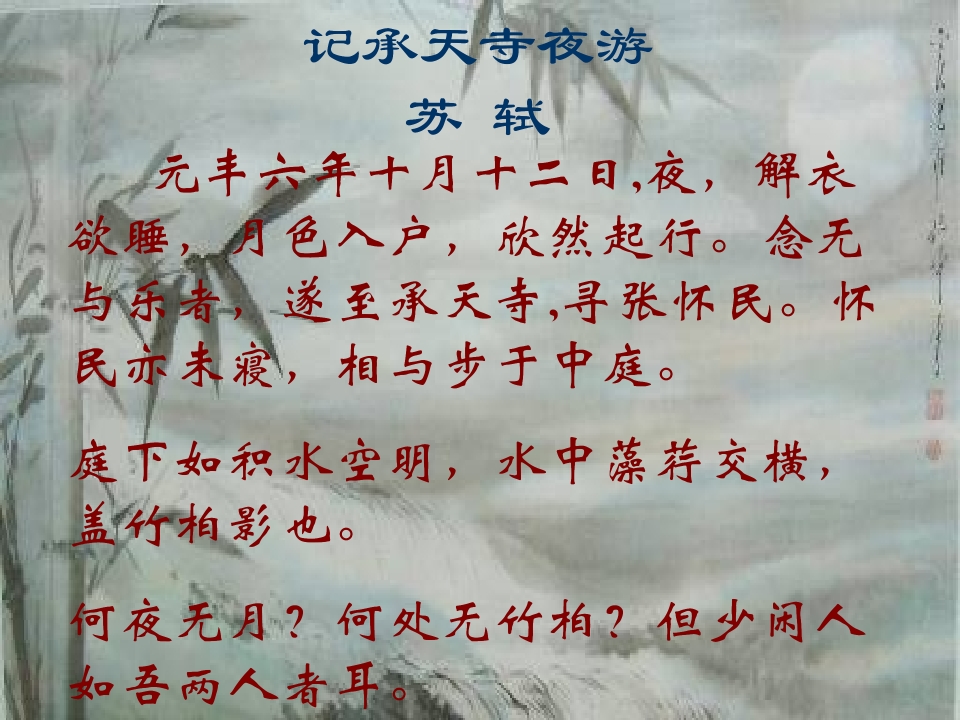 记承天寺夜游
苏 轼
元丰六年十月十二日,夜，解衣
欲睡，月色入户，欣然起行。念无
与乐者，遂至承天寺,寻张怀民。怀
民亦未寝，相与步于中庭。
庭下如积水空明，水中藻荇交横，
盖竹柏影也。
何夜无月？何处无竹柏？但少闲人
如吾两人者耳。